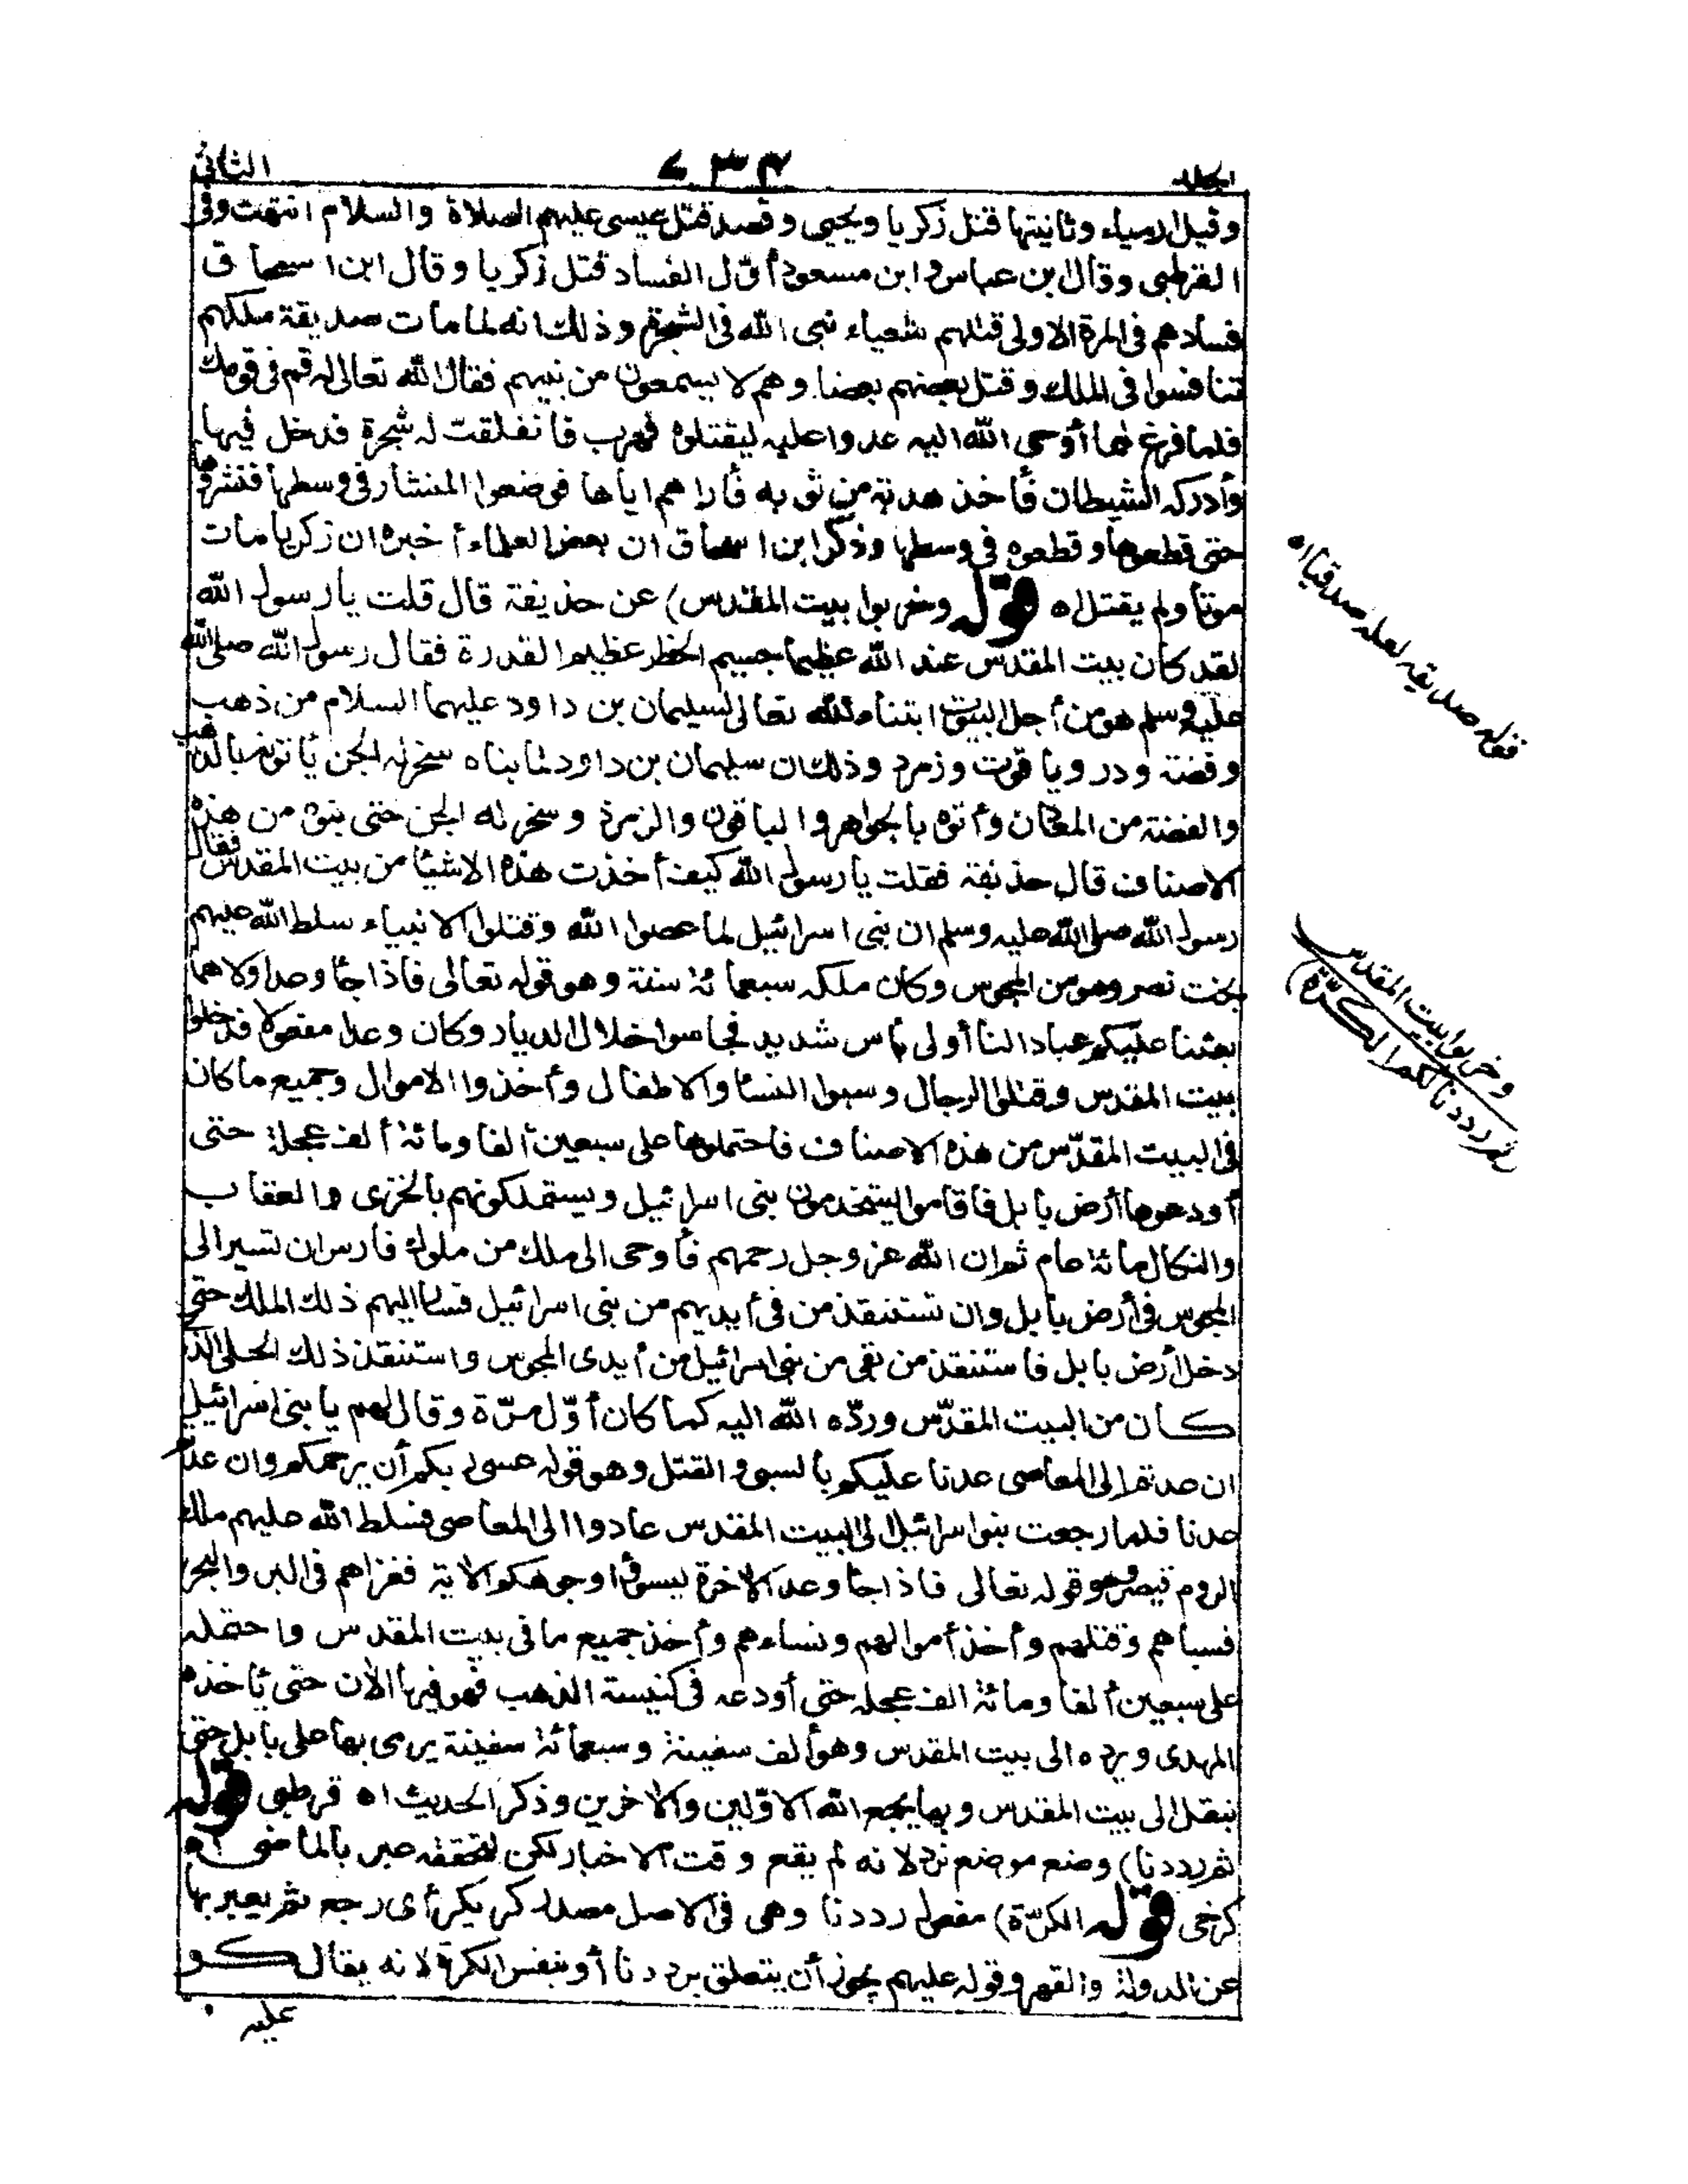 الجلد ٦٣٤ الثاني
وقيل ارمياء وثانيتها قتل زكريا ويحيى وقصد قتل عيسى عليهم الصلاة والسلام انتهت وفى
القرطبى وقال ابن عباس وابن مسعود أوّل الفساد قتل زكريا وقال ابن اسحاق
فسادهم فى المرة الاولى قتلهم شعياء نبى الله فى الشجرة وذلك انه لما مات صديقة ملكهم
تنافسوا فى الملك وقتل بعضهم بعضا وهم لا يسمعون من نبيهم فقال الله تعالى له قم فى قومك
فلما فرغ مما أوحى الله اليه عدوا عليه ليقتلوه فهرب فانفلقت له شجرة فدخل فيها
وأدركه الشيطان فأخذ هدبة من ثوبه فأراهم اياها فوضعوا المنشار فى وسطها فنشروها
حتى قطعوها وقطعوه فى وسطها وذكر ابن اسحاق ان بعض العلماء أخبره ان زكريا مات
موتا ولم يقتل اه قوله وخربوا بيت المقدس) عن حذيفة قال قلت يا رسول الله
لقد كان بيت المقدس عند الله عظيما جسيم الخطر عظيم القدرة فقال رسول الله صلى الله
عليه وسلم هو من أجل البيوت ابتناه لله تعالى لسليمان بن داود عليهما السلام من ذهب
وفضة ودر وياقوت وزمرد وذلك ان سليمان بن داود لما بناه سخر له الجن يأتونه بالذهب
والفضة من المعادن وأتوه بالجواهر والياقوت والزمرذ وسخر له الجن حتى بنوه من هذه
الاصناف قال حذيفة فقلت يا رسول الله كيف أخذت هذه الاشيا من بيت المقدس فقال
رسول الله صلى الله عليه وسلم ان بنى اسرائيل لما عصوا الله وقتلوا الانبياء سلط الله عليهم
بخت نصر وهو من المجوس وكان ملكه سبعمائة سنة وهو قوله تعالى فاذا جا وعد اولاهما
بعثنا عليكم عبادا لنا أولى باس شديد فجاسوا خلال الديار وكان وعدا مفعولا فدخلوا
بيت المقدس وقتلوا الرجال وسبوا النسا والاطفال وأخذوا الاموال وجميع ما كان
فى البيت المقدّس من هذه الاصناف فاحتملوها على سبعين ألفا ومائة ألف عجلة حتى
أودعوها أرض بابل فأقاموا يستخدمون بنى اسرائيل ويستملكونهم بالخزى والعقاب
والنكال مائة عام ثم ان الله عز وجل رحمهم فأوحى الى ملك من ملوك فارس ان تسير الى
المجوس فى أرض بابل وان تستنقذ من فى أيديهم من بنى اسرائيل فسار اليهم ذلك الملك حتى
دخل أرض بابل فاستنقذ من بقى من بنى اسرائيل من أيدى المجوس واستنقذ ذلك الحلى الذى
كان من البيت المقدّس وردّه الله اليه كما كان أوّل مرّة وقال لهم يا بنى اسرائيل
ان عدتم الى المعاصى عدنا عليكم بالسبى والقتل وهو قوله عسى ربكم أن يرحمكم وان عدتم
عدنا فلما رجعت بنوا اسرائيل الى البيت المقدس عادوا الى المعاصى فسلط الله عليهم ملك
الروم قيصر وهو قوله تعالى فاذا جا وعد الاخرة ليسوؤا وجوهكم الاية فغزاهم فى البر والبحر
فسباهم وقتلهم وأخذ أموالهم ونساءهم وأخذ جميع ما فى بيت المقدس واحتمله
على سبعين ألفا ومائة الف عجله حتى أودعه فى كنيسة الذهب فهو فيها الآن حتى يأخذه
المهدى ويرده الى بيت المقدس وهو ألف سفينة وسبعمائة سفينة يرمى بها على بابل حتى
ينقل الى بيت المقدس وبها يجمع الله الاوّلين والاخرين وذكر الحديث اه قرطبى قوله
ثم رددنا) وضع موضع نرد لانه لم يقع وقت الاخبار لكن لتحققه عبر بالماضى اه
كرخى قوله الكرّة) مفعول رددنا وهى فى الاصل مصدر كر يكر أى رجع ثم يعبر بها
عن الدولة والقهر وقوله عليهم يجوز أن يتعلق برددنا أو بنفس الكرة لانه يقال كر
عليه
قوله صديقه لعله صدقيا اه
وخربوا بيت المقدس
ثم رددنا لكم الكرّة)